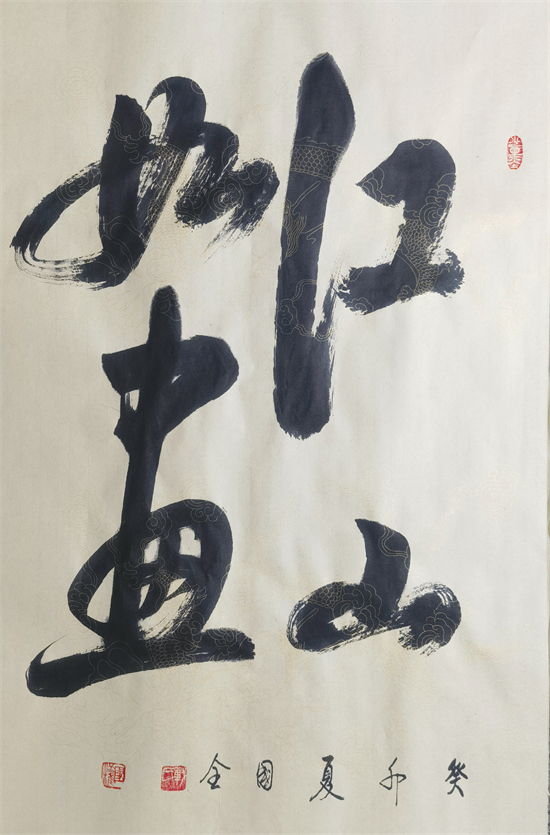 江山
如畫
癸卯夏國全